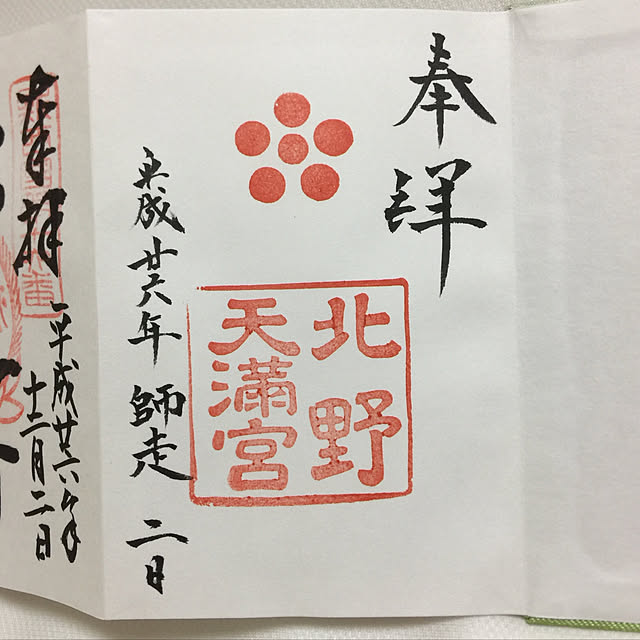 奉拝
北野
天満宮
平成廿六年 師走 二日
奉拝
平成廿六年
十二月二日